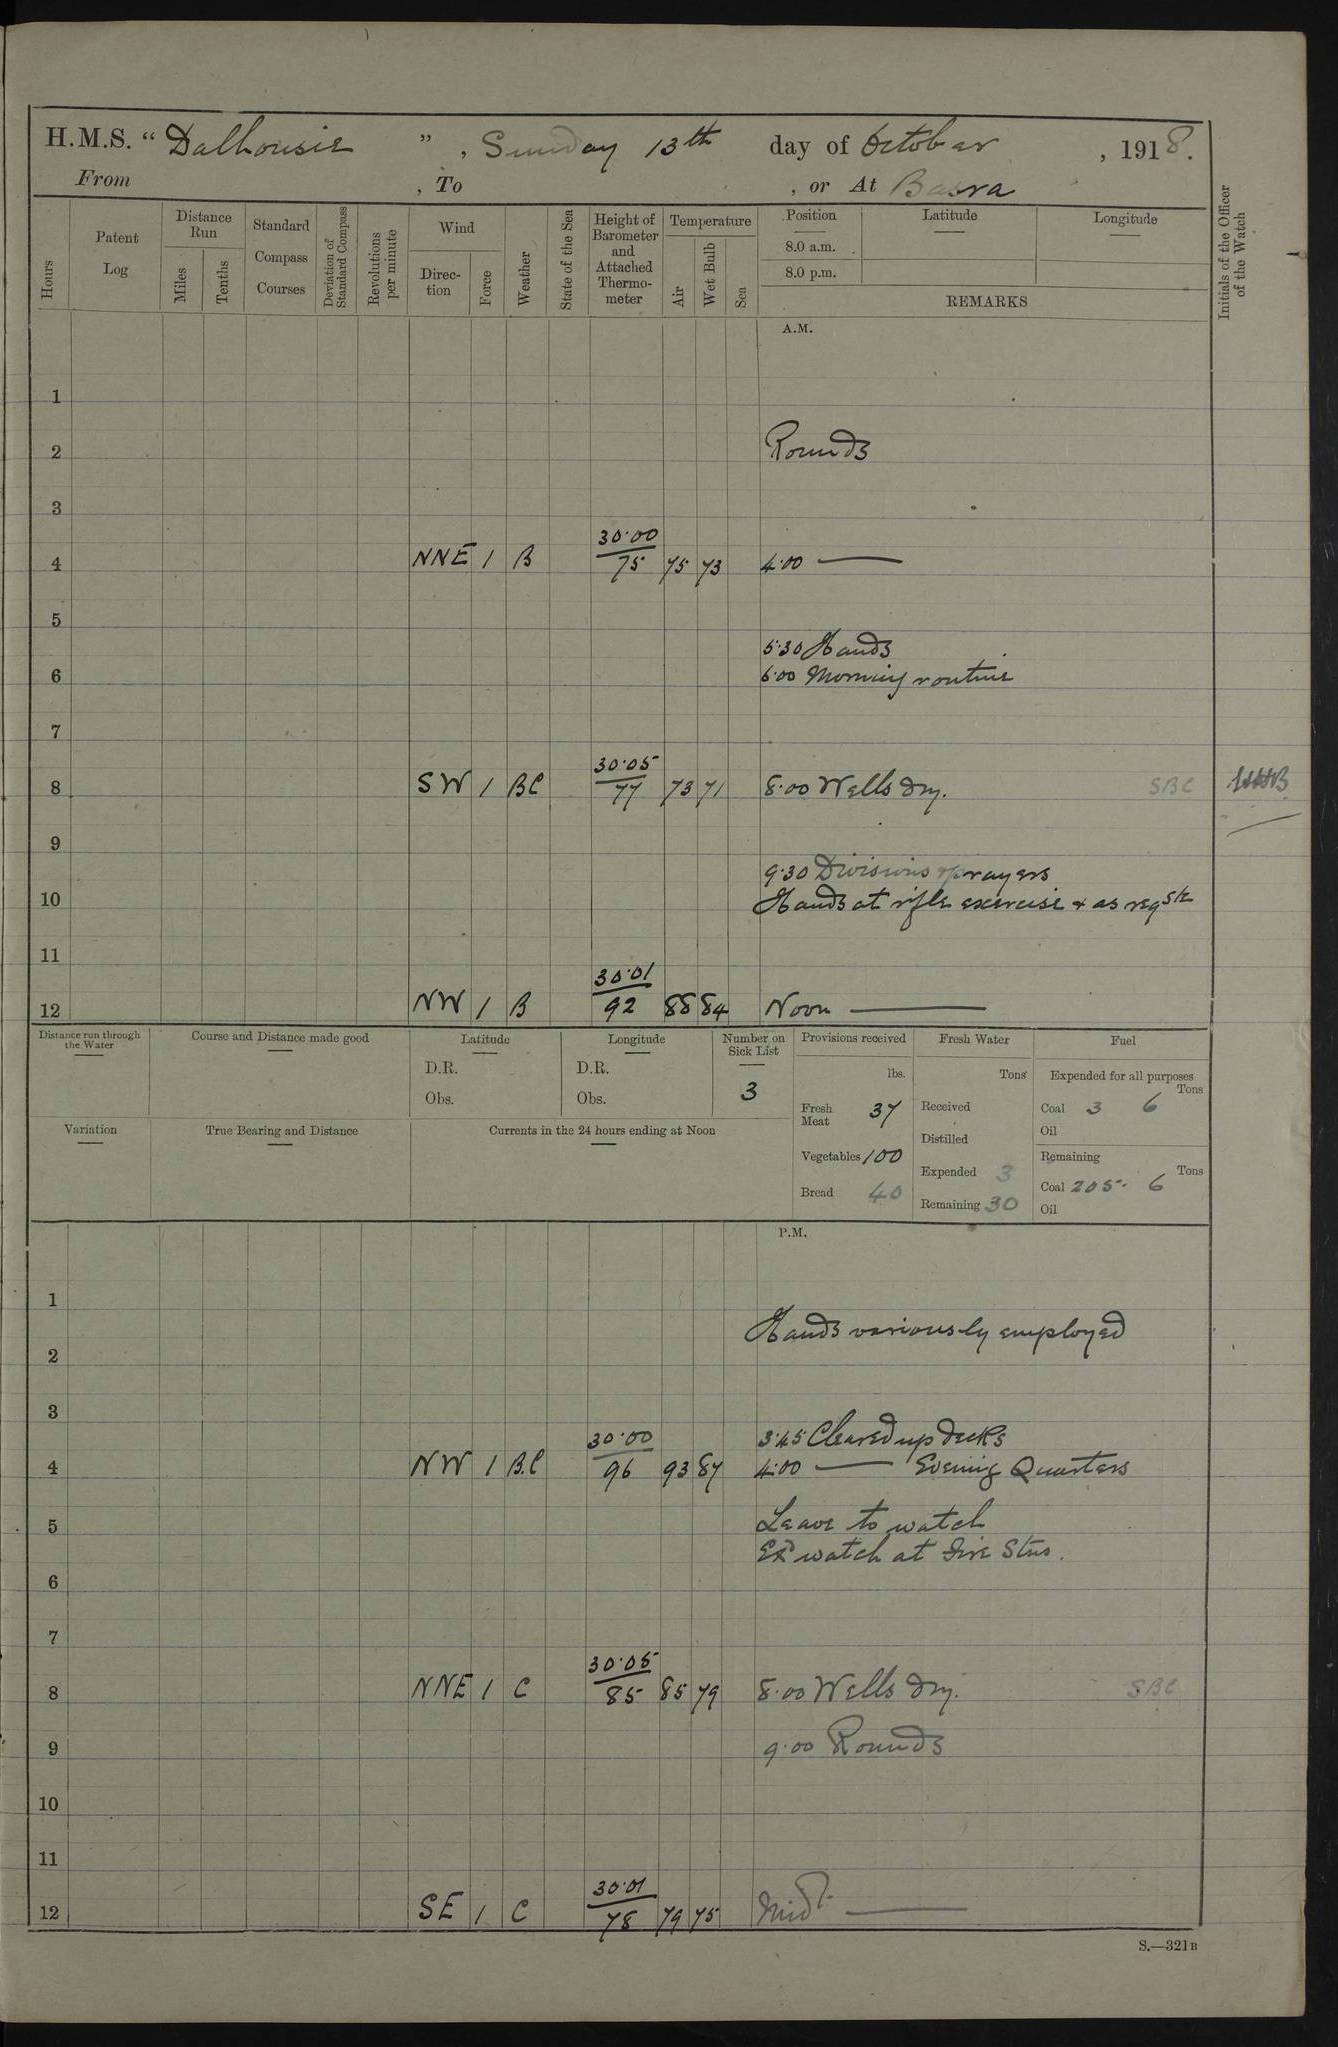 H.M.S. “Dalhousie”, Sunday 13th day of October, 1918.
From , To , or At Basra
Hours
Patent Log
Distance Run
Miles
Tenths
Standard Compass Courses
Deviation of Standard Compass
Revolutions per minute
Wind
Direction
Force
Weather
State of the Sea
Height of Barometer and Attached Thermometer
Temperature
Air
Wet Bulb
Sea
Position
8.0 a.m.
8.0 p.m.
Latitude
Longitude
REMARKS
Initials of the Officer of the Watch
A.M.
1
2 Rounds
3
4 NNE 1 B 30.00/75 75 73 4.00 —
5
5.30 Hands
6 6.00 Morning routine
7
8 SW 1 BC 30.05/77 73 71 8.00 Wells dry. SBC
9
9.30 Divisions & prayers
10 Hands at rifle exercise & as reqste
11
12 NW 1 B 30.01/92 88 84 Noon —
Distance run through the Water
Course and Distance made good
Latitude
D.R.
Obs.
Longitude
D.R.
Obs.
Number on Sick List
3
Provisions received
lbs.
Fresh Meat 37
Vegetables 100
Bread 40
Fresh Water
Tons
Received
Distilled
Expended 3
Remaining 30
Fuel
Expended for all purposes
Tons
Coal 3 6
Oil
Remaining
Tons
Coal 205. 6
Oil
Variation
True Bearing and Distance
Currents in the 24 hours ending at Noon
P.M.
1
Hands variously employed
2
3
3.45 Cleared up decks
4 NW 1 B.C 30.00/96 93 87 4.00 — Evening Quarters
5 Leave to watch
Exd watch at Fire Stns.
6
7
8 NNE 1 C 30.05/85 85 79 8.00 Wells dry. SBC
9 9.00 Rounds
10
11
12 SE 1 C 30.01/78 79 75 Midt. —
S.—321B